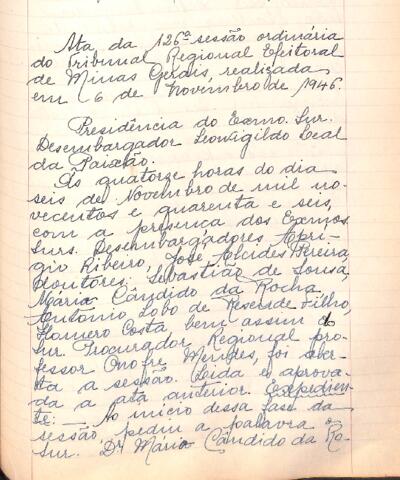 Ata, da 126ª sessão ordinária
do Tribunal Regional Eleitoral
de Minas Gerais, realizada
em 6 de novembro de 1946.
Presidência do Exmo. Sur.
Desembargador Leovigildo Leal
da Paixão.
Às quatorze horas do dia
seis de Novembro de mil no-
vecentos e quarenta e seis,
com a presença dos Exmos.
Surs. Desembargadores Apri-
gio Ribeiro, José Alcides Pereira,
doutores: Sebastião de Sousa,
Mário Cândido da Rocha,
Antônio Lobo de Resende Filho,
Homero Costa bem assim o
Sur. Procurador Regional pro-
fessor Onofre Mendes, foi aber-
ta a sessão. Lida e aprova-
da a ata anterior. Expedien-
te: — Ao início dessa fase da
sessão, pediu a palavra o
Sur. Dr. Mário Cândido da Ro-